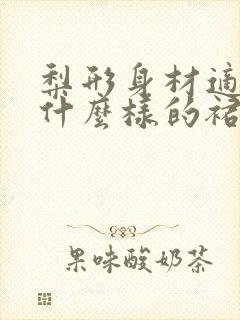 梨形身材適
什麼樣的裙
果味酸奶茶